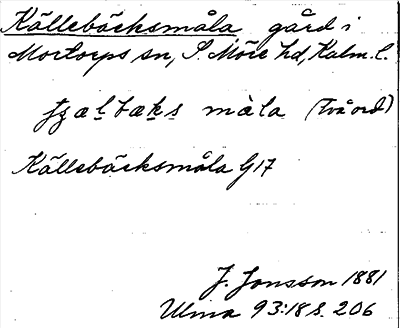 Källebäcksmåla gård i
Mortorps sn, S. Möre hd, Kalm. l.
måla (två ord)
Källebäcksmåla G17
J. Jonsson 1881
Ulma 93:18 s. 206